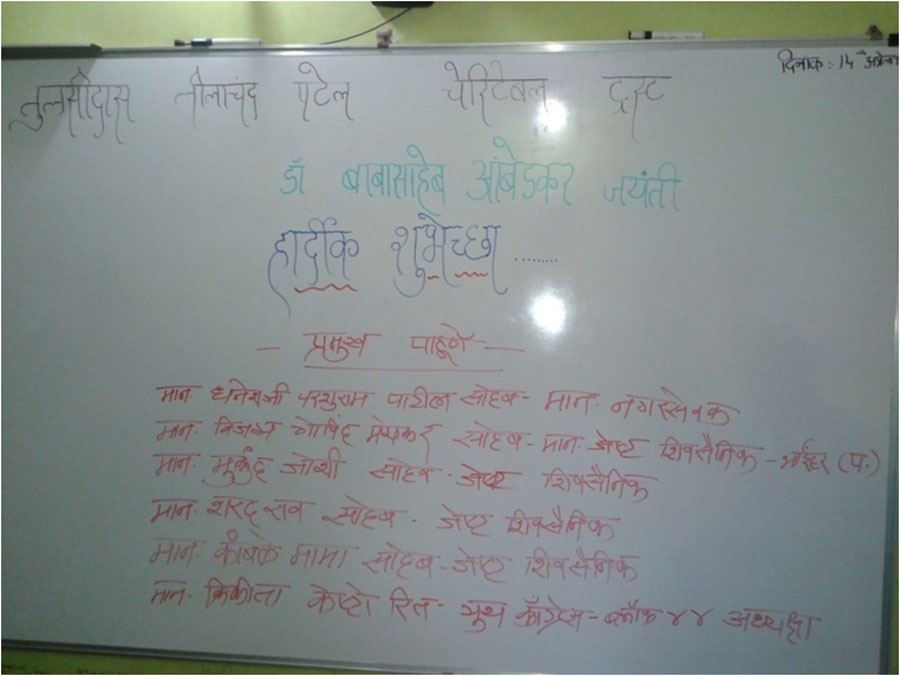 दिनांक : १४ अप्रेल
तुलसीदास लीलाचंद पटेल चेरिटेबल ट्रस्ट
डॉ बाबासाहेब आंबेडकर जयंती
हार्दीक शुभेच्छा ........
- प्रमुख पाहूणे -
मान. धनेशजी परशुराम पाटील साहेब - मान. नगरसेवक
मान. विजय गोविंद साहेब - मान. जेष्ट शिवसैनिक - भाईंदर (प.)
मान. मुकुंद जोशी साहेब - जेष्ट शिवसैनिक
मान. शरद राव साहेब - जेष्ट शिवसैनिक
मान. कांबळे मामा साहेब - जेष्ट शिवसैनिक
मान. युथ काँग्रेस - ब्लॉक ४४ अध्यक्षा